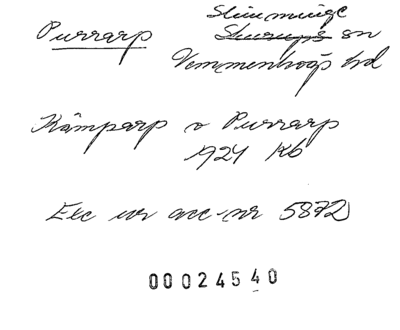 Purrarp Slimminge
Skurups sn
Vemmenhögs hd
Kämparp o Purrarp
1924 Kb
Exc ur acc-nr 5872
00024540